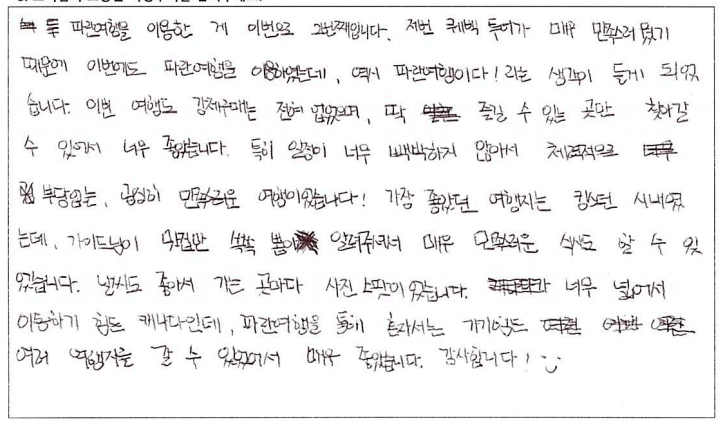 파란여행을 이용한 게 이번으로 2번째입니다. 저번 퀘벡 투어가 매우 만족스러웠기
때문에 이번에도 파란여행을 이용하였는데, 역시 파란여행이다! 라는 생각이 들게 되었
습니다. 이번 여행도 강제구매는 전혀 없었으며, 딱 즐길 수 있는 곳만 찾아갈
수 있어서 너무 좋았습니다. 특히 일정이 너무 빡빡하지 않아서 체력적으로
부담없는, 굉장히 만족스러운 여행이었습니다! 가장 좋았던 여행지는 킹스턴 시내였
는데, 가이드님이 맛집만 쏙쏙 뽑아 알려주셔서 매우 만족스러운 식사도 할 수 있
었습니다. 날씨도 좋아서 가는 곳마다 사진 스팟이었습니다. 너무 넓어서
이동하기 힘든 캐나다인데, 파란여행을 통해 혼자서는 가기힘든
여러 여행지를 갈 수 있었어서 매우 좋았습니다. 감사합니다!